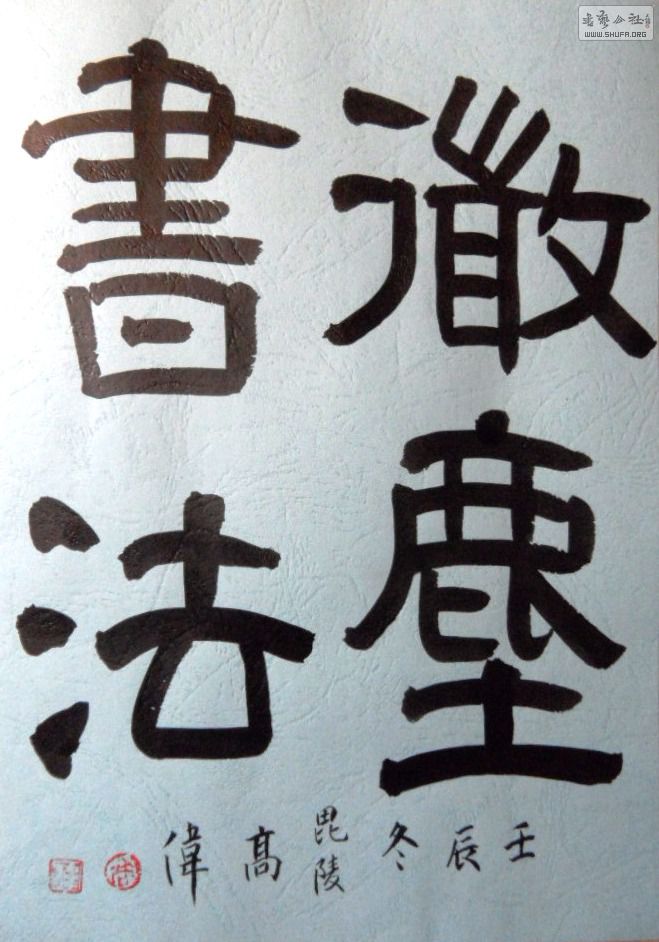 微塵
書法
壬辰冬毘陵髙偉
書藝公社
WWW.SHUFA.ORG